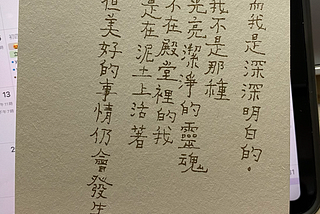 而我是深深明白的。
我不是那種
光亮潔淨的靈魂
不在殿堂裡的我
是在泥土上活著
但美好的事情仍會發生
13